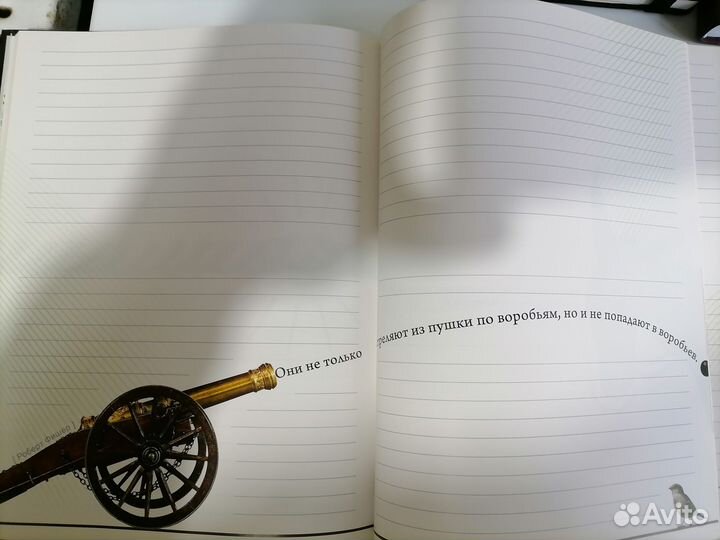 Они не только стреляют из пушки по воробьям, но и не попадают в воробьев.
| Роберт Фишер |
Avito